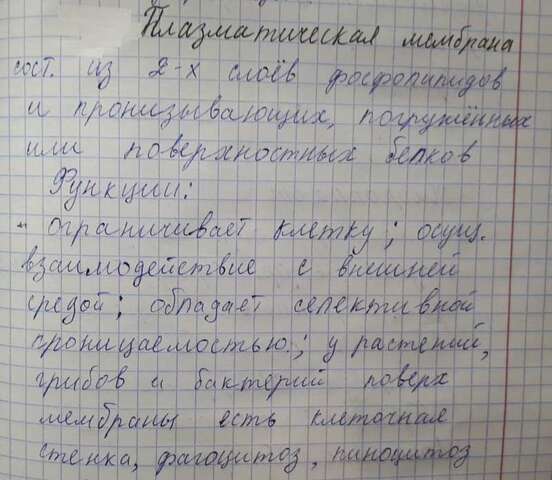 Плазматическая мембрана
сост. из 2-х слоёв фосфолипидов
и пронизывающих, погружённых
или поверхностных белков
Функции:
- ограничивает клетку; осущ.
взаимодействие с внешней
средой; обладает селективной
проницаемостью.; у растений,
грибов и бактерий поверх
мембраны есть клеточная
стенка, фагоцитоз, пиноцитоз